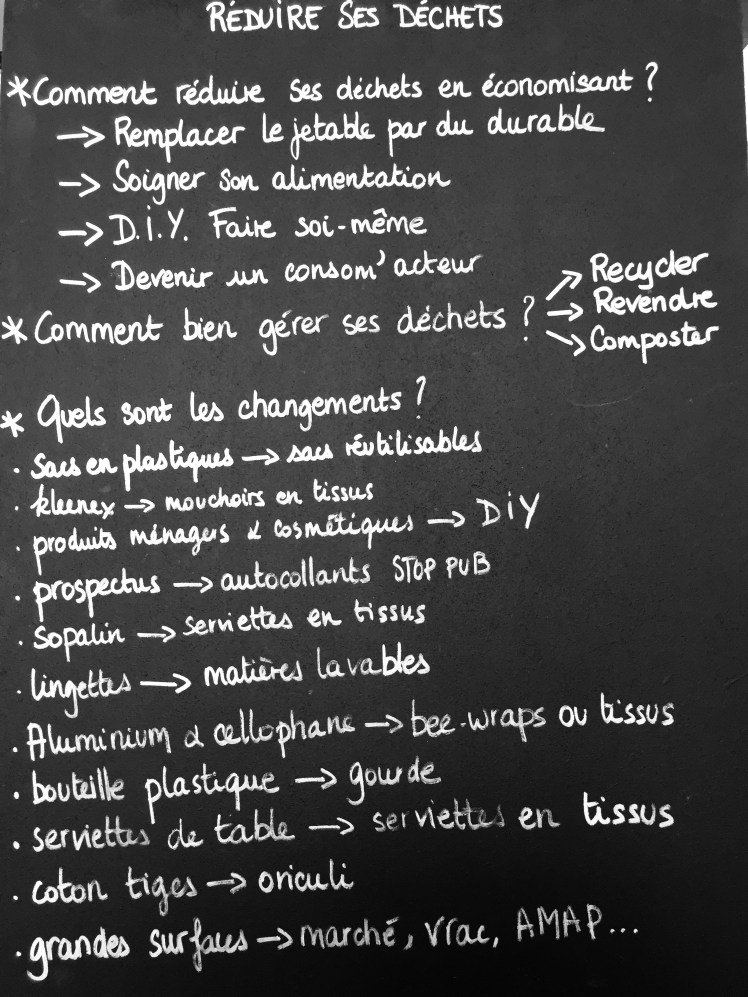 RÉDUIRE SES DÉCHETS
*Comment réduire ses déchets en économisant ?
→ Remplacer le jetable par du durable
→ Soigner son alimentation
→ D.I.Y. Faire soi-même
→ Devenir un consom'acteur
* Comment bien gérer ses déchets ? → Recycler
→ Revendre
→ Composter
* Quels sont les changements ?
. Sacs en plastiques → sacs réutilisables
. kleenex → mouchoirs en tissus
. produits ménagers & cosmétiques → DIY
. prospectus → autocollants STOP PUB
. Sopalin → Serviettes en tissus
. lingettes → matières lavables
. Aluminium & cellophane → bee-wraps ou tissus
. bouteille plastique → gourde
. serviettes de table → serviettes en tissus
. coton tiges → oriculi
. grandes surfaces → marché, vrac, AMAP...